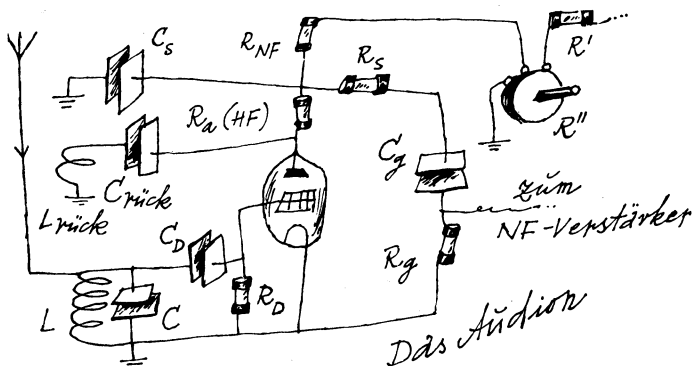 C_S
R_NF
R_s
R'
R"
R_a (HF)
C_g
L_rück
C_rück
C_D
zum
NF-Verstärker
R_g
R_D
L
C
Das Audion